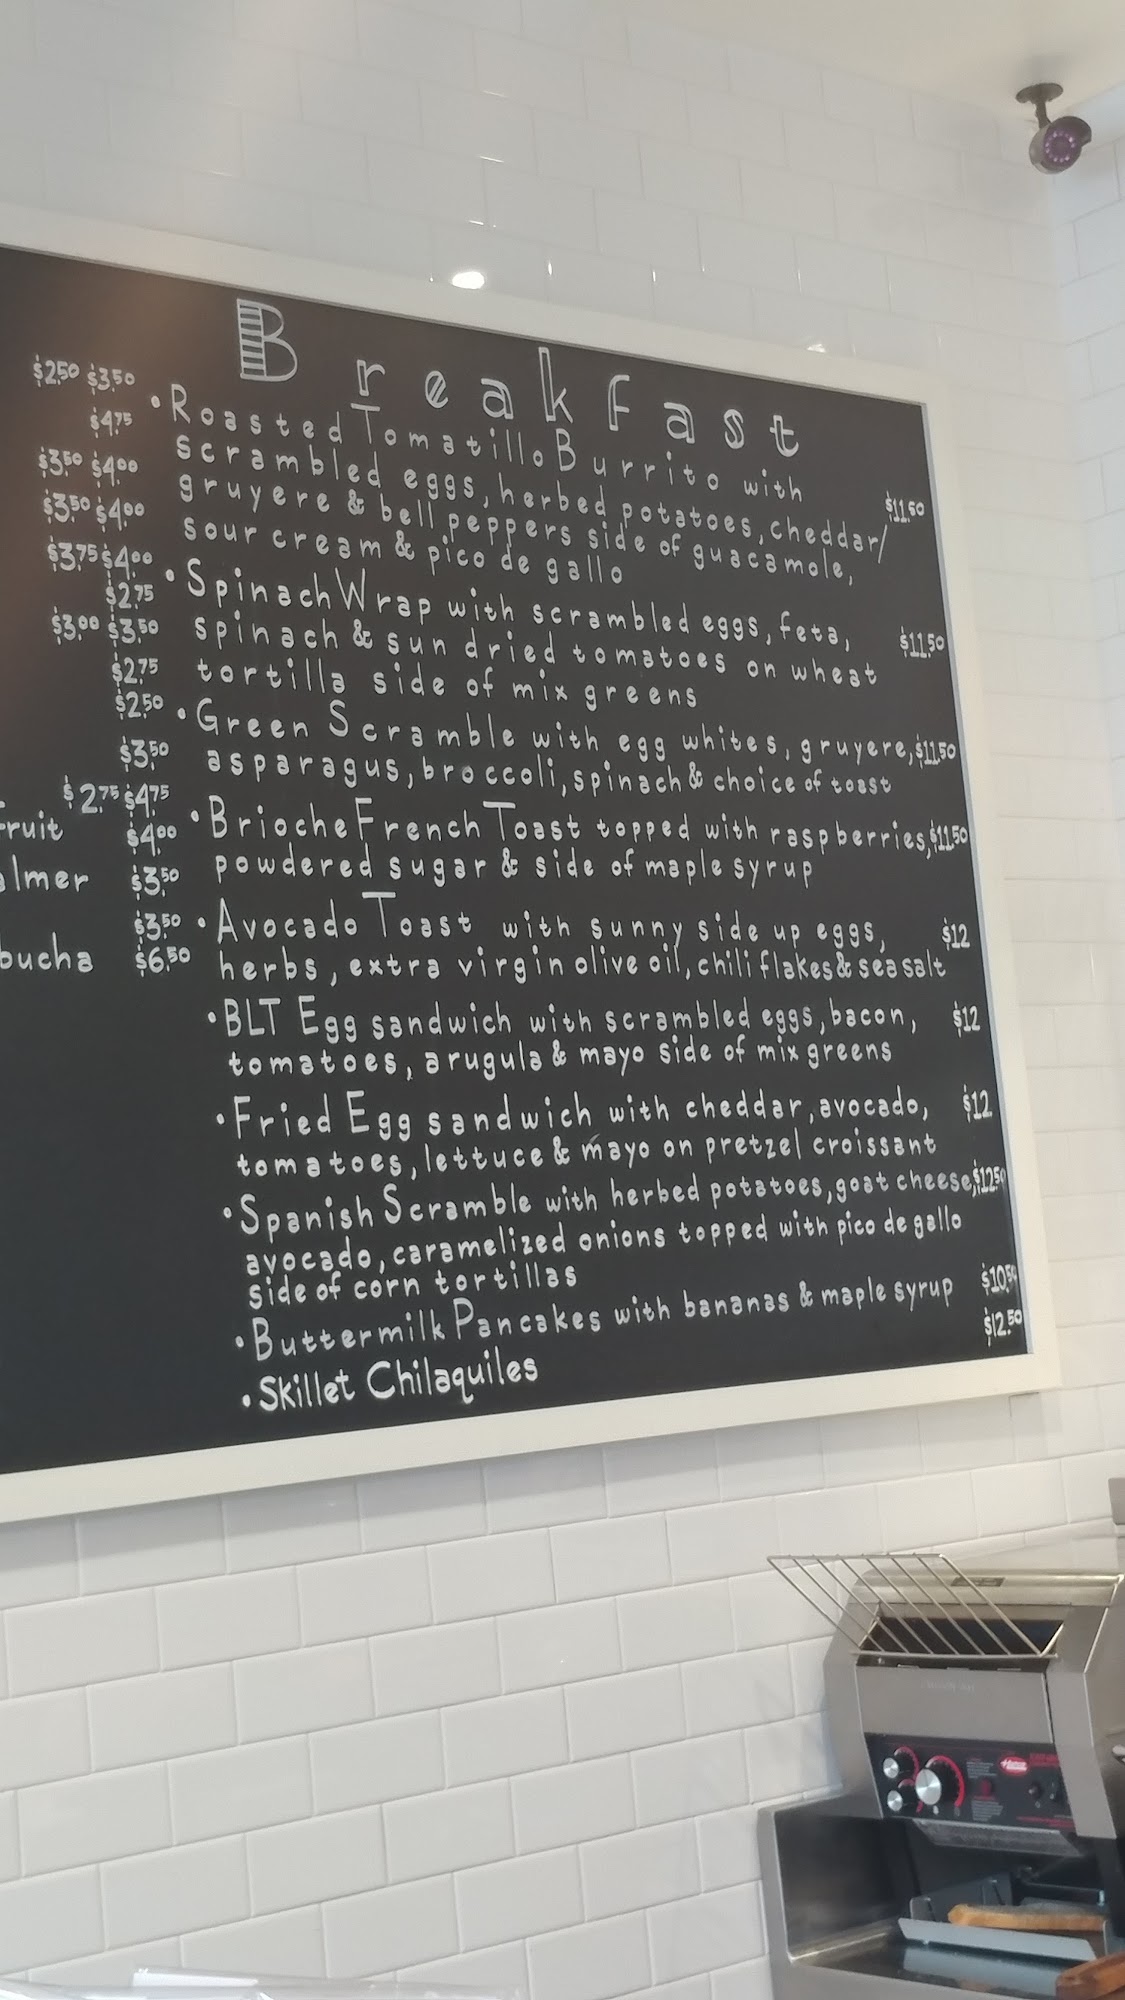 Breakfast
$2.50 $3.50
$4.75
$3.50 $4.00
$3.50 $4.00
$3.75 $4.00
$2.75
$3.00 $3.50
$2.75
$2.50
$3.50
$2.75 $4.75
$4.00
$3.50
$3.50
bucha $6.50
• Roasted Tomatillo Burrito with
scrambled eggs, herbed potatoes, cheddar/ $11.50
gruyere & bell peppers side of guacamole,
sour cream & pico de gallo
• Spinach Wrap with scrambled eggs, feta,
spinach & sun dried tomatoes on wheat $11.50
tortilla side of mix greens
• Green Scramble with egg whites, gruyere, $11.50
asparagus, broccoli, spinach & choice of toast
• Brioche French Toast topped with raspberries, $11.50
powdered sugar & side of maple syrup
• Avocado Toast with sunny side up eggs, $12
herbs, extra virgin olive oil, chili flakes & sea salt
• BLT Egg sandwich with scrambled eggs, bacon, $12
tomatoes, arugula & mayo side of mix greens
• Fried Egg sandwich with cheddar, avocado, $12
tomatoes, lettuce & mayo on pretzel croissant
• Spanish Scramble with herbed potatoes, goat cheese, $12.50
avocado, caramelized onions topped with pico de gallo
side of corn tortillas
• Buttermilk Pancakes with bananas & maple syrup $10.50
• Skillet Chilaquiles $12.50